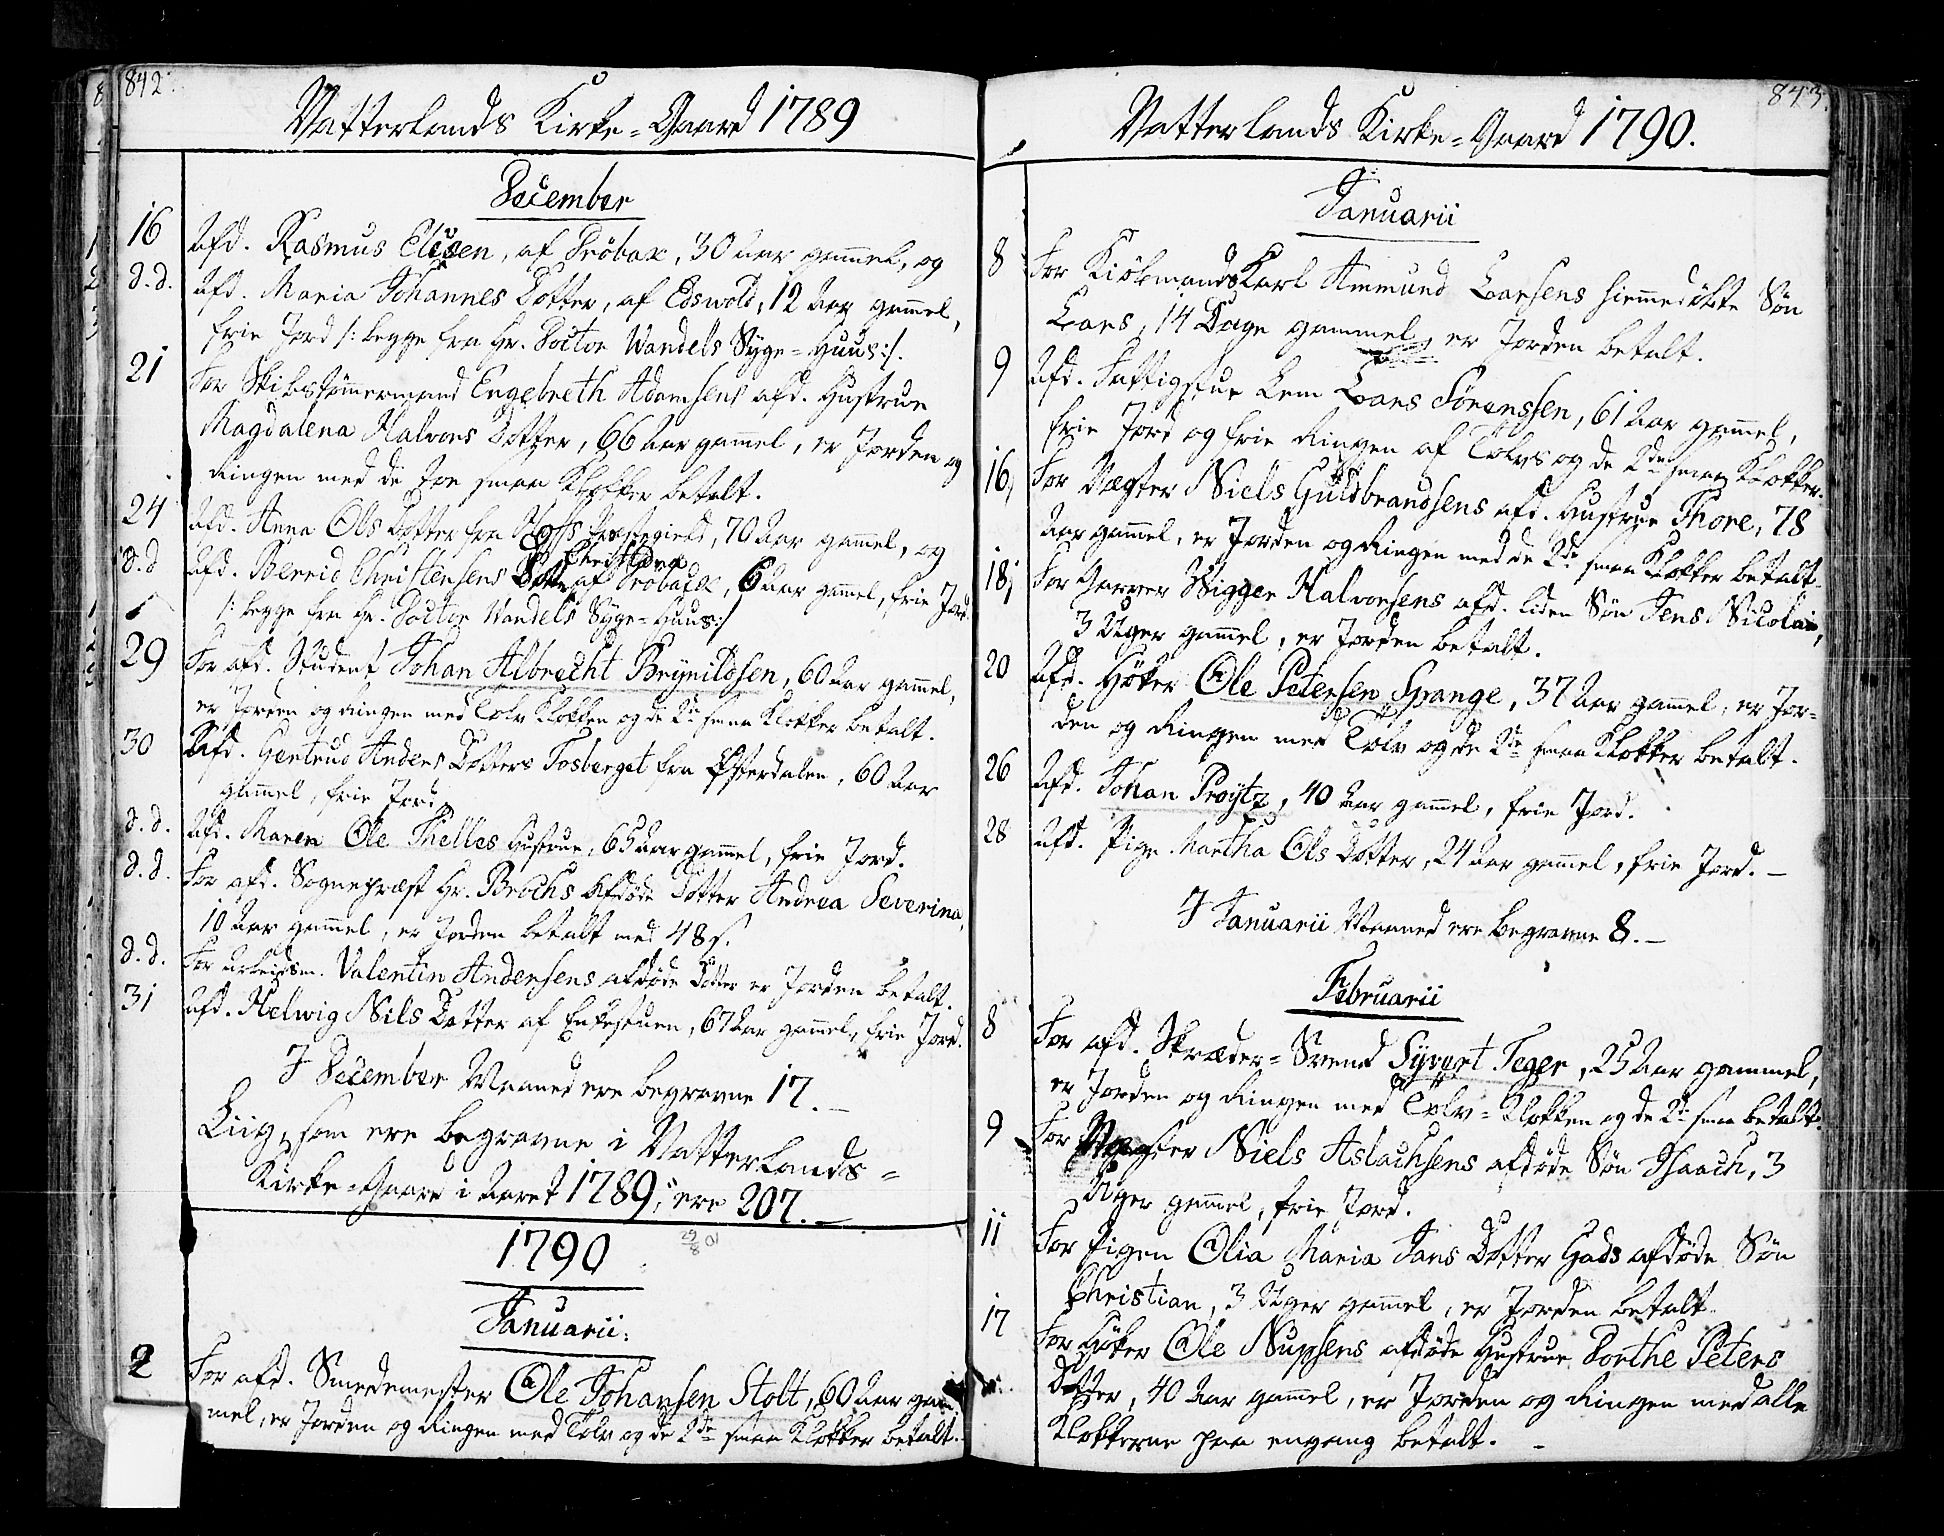 842.
Vatterlands Kirke=Gaard 1789
December
16 Afd. Rasmus Elisen, af Dröbax, 30 Aar gam̄el, og
d.d. Afd. Maria Johannes Dotter, af Edswold, 12 Aar gam̄el,
frie Jord /: begge fra Hr. Doctor Wandels Syge=Huus:/.
21 For Skibstöm̄ermand Engebreth Adamsens afd. Hustrue
Magdalena Halvors Dotter, 66 Aar gam̄el, er Jorden og
Ringen med de Toe smaa Klokker betalt.
24 Afd. Anna Ols Dotter fra Præstegield, 70 Aar gam̄el, og
d.d Afd. Berrid Christensens Dotter af Dröbach, 6 Aar gam̄el, frie Jord
/: begge fra Hr. Doctor Wandels Syge=Huus:/
29 For afd. Student Johan Albrecht Brynildsen, 60 Aar gam̄el,
er Jorden og Ringen med Tolv Klokken og de 2de smaa Klokker betalt.
30 Afd. Gertrud Anders Dotters Fosberget fra Österdalen, 60 Aar
gam̄el, frie Jord.
d.d. Afd. Maren Ole Thelles Hustrue, 65 Aar gam̄el, frie Jord.
d.d. For afd. Sognepræst Hr. Brochs Afdöde Dotter Andrea Severina,
10 Aar gam̄el, er Jorden betalt med 48 s.
d.d. For Arbeidsm. Valentin Andersens afdöde Dotter er Jorden betalt.
31 Afd. Helwig Nils Dotter af Enkestuen, 67 Aar gam̄el, frie Jord.
I December Maaned ere begravne 17.
Liig, som ere begravne i Vatterlands=
Kirke=Gaard i Aaret 1789, ere 207.
1790
Januarii.
2 For afd. Smedemester Ole Johansen Stolt, 60 Aar gam=
mel, er Jorden og Ringen med Tolv og de 2de smaa Klokker betalt.
843.
Vatterlands Kirke=Gaard 1790.
Januarii
8 For KiöbmandsKarl Ammund Larsens hiem̄edöbte Sön
Lars, 14 Dage gammel, er Jorden betalt.
9 Afd. Fattigstue Lem Lars Sörenssen, 61 Aar gam̄el,
frie Jord og frie Ringen af Tolvs og de 2de smaa Klokker.
16, For Vægter Niels Guldbrandsens afd. Hustrue Thore, 78
Aar gam̄el, er Jorden og Ringen med de 2de smaa Klokker betalt.
18, For Garver Wigger Halvorsens afd. liden Sön Jens Nicolai,
3 Uger gam̄el, er Jorden betalt.
20 Afd. Höker Ole Petersen Spange, 37 Aar gam̄el, er Jor=
den og Ringen med Tolv og de 2de smaa Klokker betalt.
26 Afd. Johan Proytz, 40 Aar gam̄el, frie Jord.
28 Afd. Pige Martha Ols Dotter, 24 Aar gam̄el, frie Jord.
I Januarii Maaned ere begravne 8.
Februarii
8 For afd. Skræder=Svend Syvert Teger, 25 Aar gammel,
er Jorden og Ringen med Tolv=Klokken og de 2de smaa betalt.
9 For Vægter Niels Aslachsens afdöde Sön Isaach, 3
Uger gam̄el, frie Jord.
11 For Pigen Olia Maria Jans Dotter Gads afdöde Sön
Christian, 3 Uger gam̄el, er Jorden betalt.
17 For Höker Ole Nupsens afdöde Hustrue Dorthe Peters
Dotter, 40 Aar gam̄el, er Jorden og Ringen med alle
Klokkerne paa engang betalt.